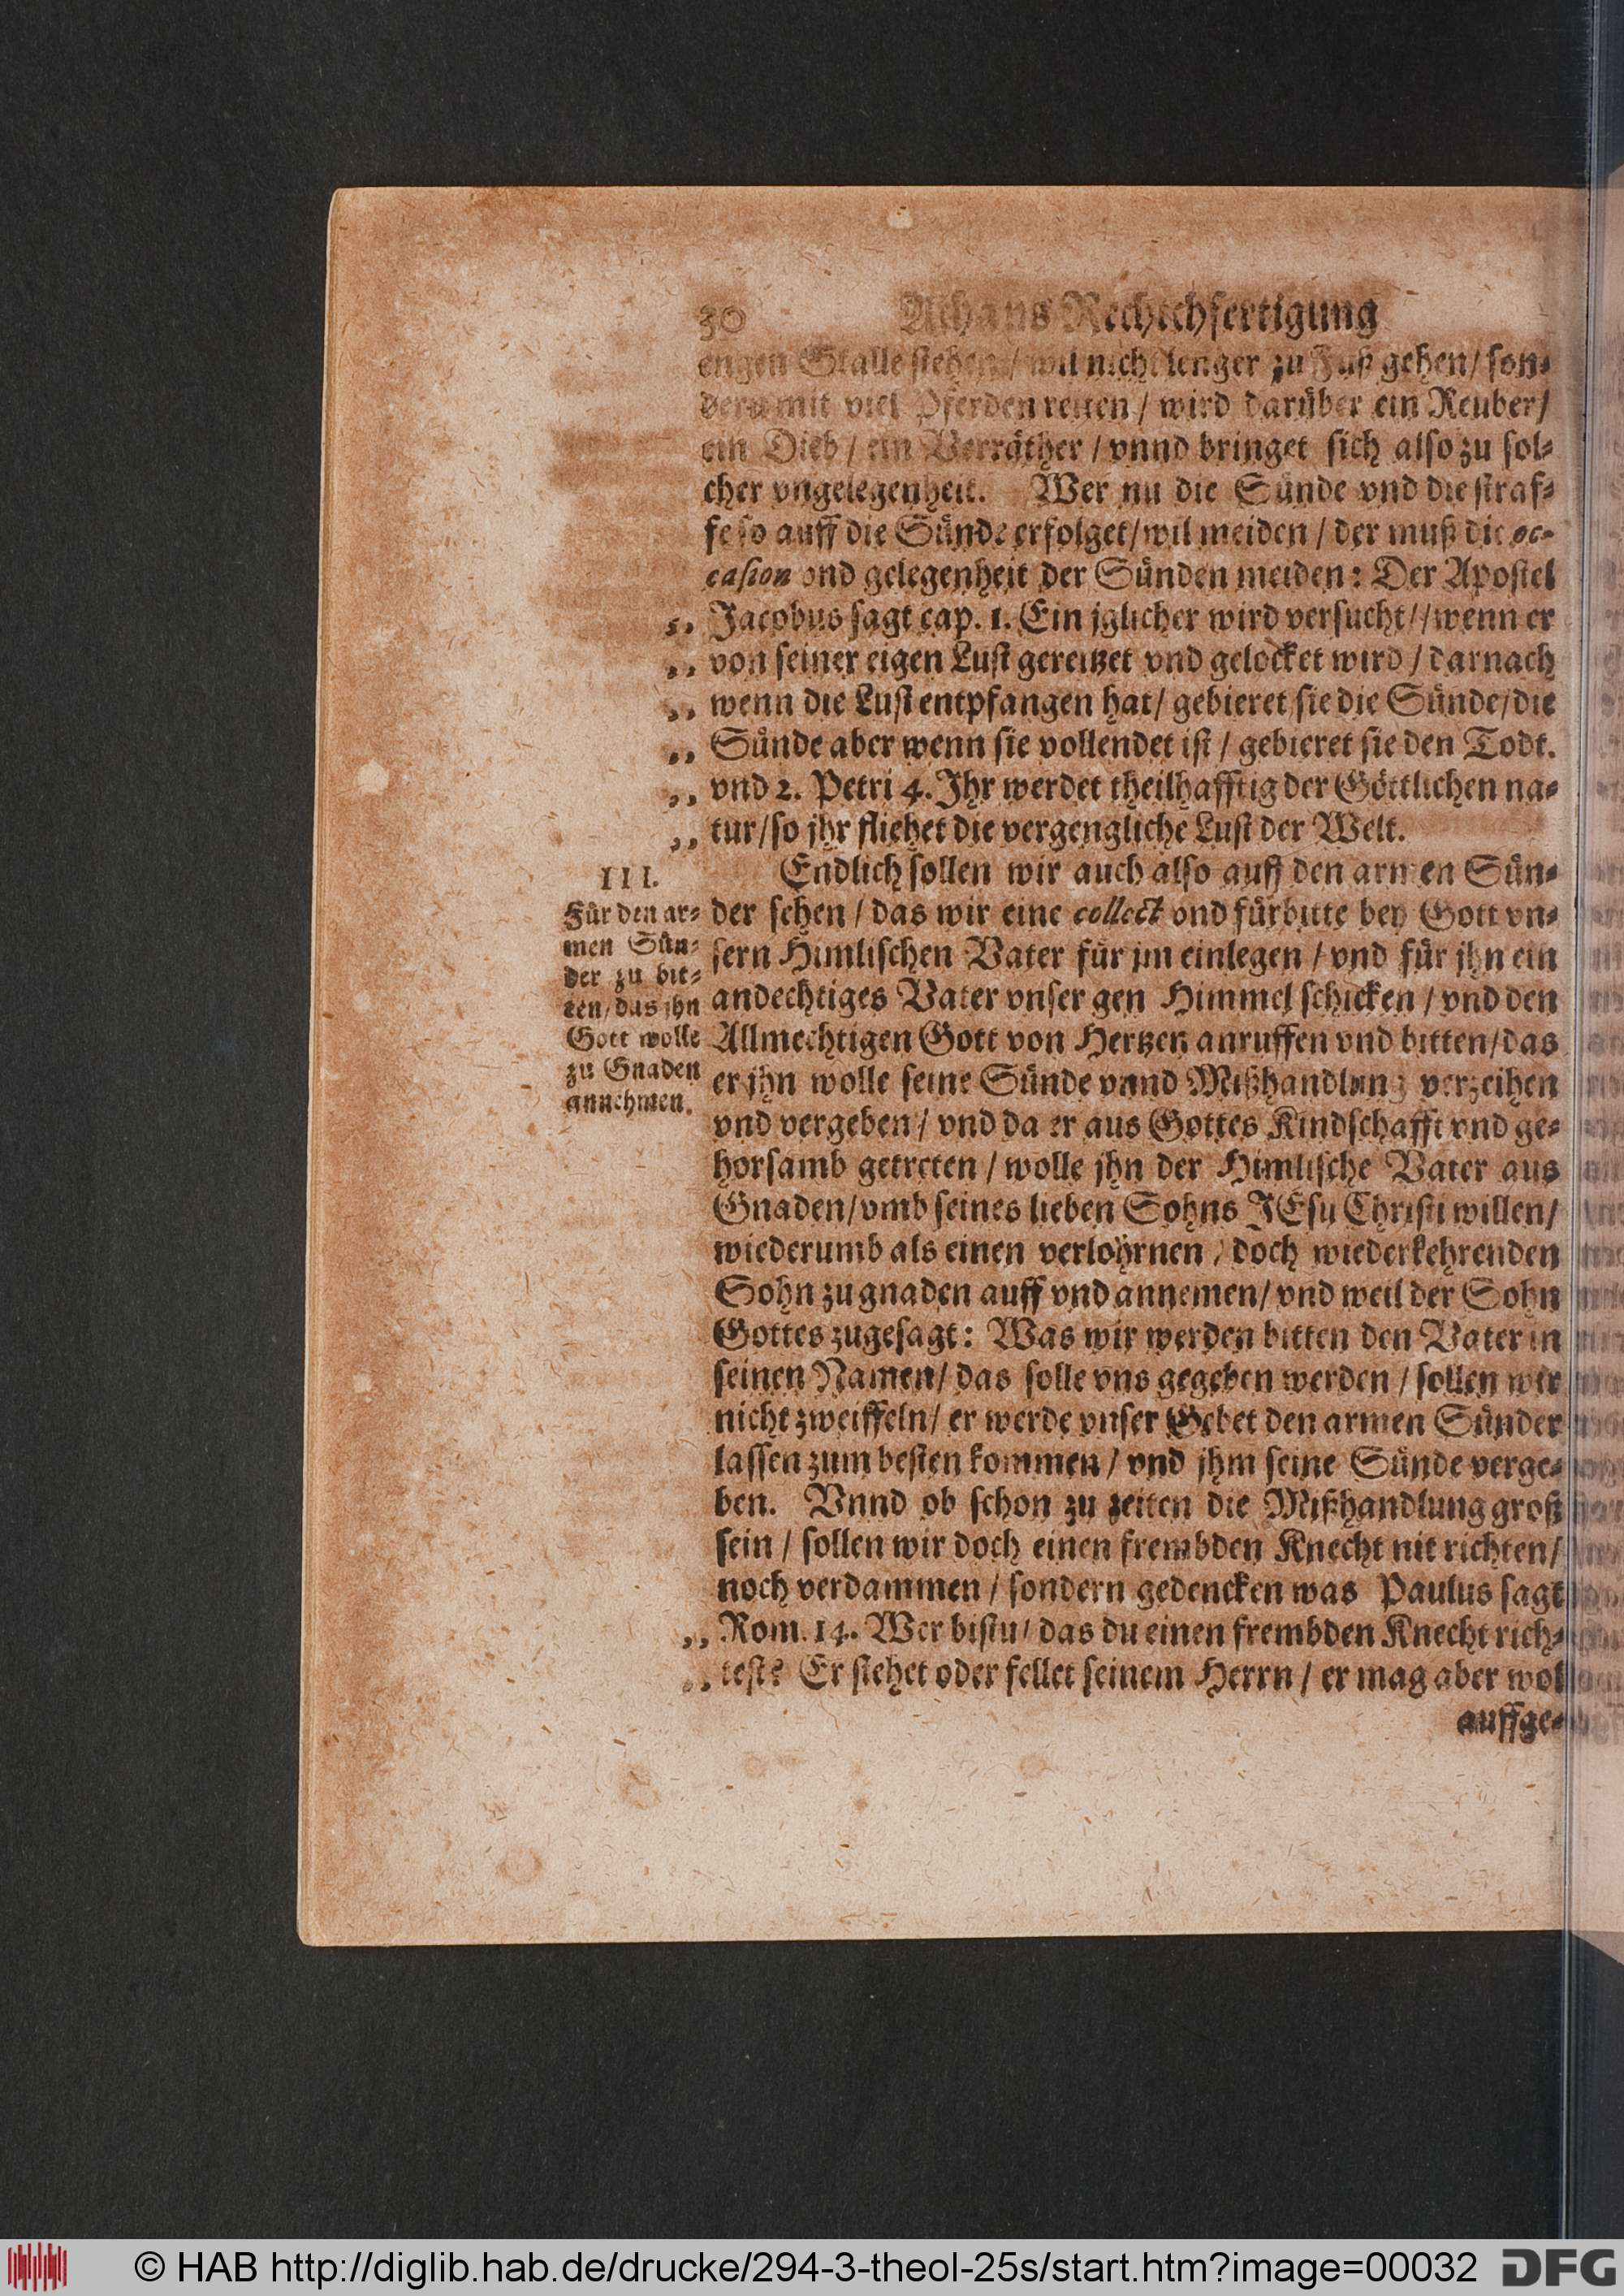 30 Achans Rechtchfertigung
engen Stalle stehen / wil nicht lenger zu Fuß gehen / son-
dern mit viel Pferden reiten / wird darüber ein Reuber /
ein Dieb / ein Verräther / vnnd bringet sich also zu sol-
cher vngelegenheit. Wer nu die Sünde vnd die straf-
fe so auff die Sünde erfolget / wil meiden / der muß die oc-
casion vnd gelegenheit der Sünden meiden: Der Apostel
„ Jacobus sagt cap. 1. Ein jglicher wird versucht / / wenn er
„ von seiner eigen Lust gereitzet vnd gelocket wird / darnach
„ wenn die Lust entpfangen hat / gebieret sie die Sünde / die
„ Sünde aber wenn sie vollendet ist / gebieret sie den Todt.
„ vnd 2. Petri 4. Jhr werdet theilhafftig der Göttlichen na-
„ tur / so jhr fliehet die vergengliche Lust der Welt.
Endlich sollen wir auch also auff den armen Sün-
der sehen / das wir eine collect vnd fürbitte bey Gott vn-
sern Himlischen Vater für jm einlegen / vnd für jhn ein
andechtiges Vater vnser gen Himmel schicken / vnd den
Allmechtigen Gott von Hertzen anruffen vnd bitten / das
er jhn wolle seine Sünde vnnd Mißhandlung verzeihen
vnd vergeben / vnd da er aus Gottes Kindschafft vnd ge-
horsamb getreten / wolle jhn der Himlische Vater aus
Gnaden / vmb seines lieben Sohns JEsu Christi willen /
wiederumb als einen verlohrnen / doch wiederkehrenden
Sohn zu gnaden auff vnd annemen / vnd weil der Sohn
Gottes zugesagt: Was wir werden bitten den Vater in
seinen Namen / das solle vns gegeben werden / sollen wir
nicht zweiffeln / er werde vnser Gebet den armen Sünder
lassen zum besten kommen / vnd jhm seine Sünde verge-
ben. Vnnd ob schon zu zeiten die Mißhandlung groß
sein / sollen wir doch einen frembden Knecht nit richten /
noch verdammen / sondern gedencken was Paulus sagt
„ Rom. 14. Wer bistu / das du einen frembden Knecht rich-
„ test? Er stehet oder fellet seinem Herrn / er mag aber wol
auffge-
III.
Für den ar-
men Sün-
der zu bit-
ten / das jhn
Gott wolle
zu Gnaden
annehmen.
© HAB http://diglib.hab.de/drucke/294-3-theol-25s/start.htm?image=00032
DFG